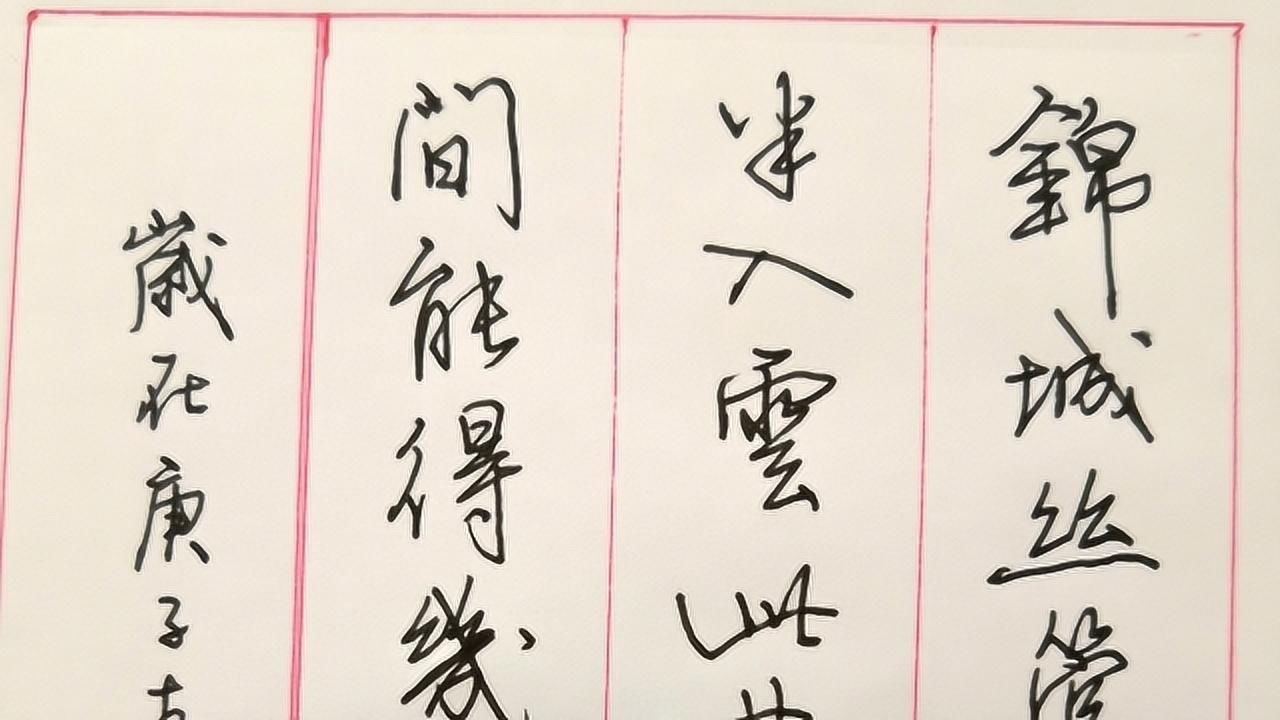 錦城丝管
半入雲此
間能得幾
歲在庚子